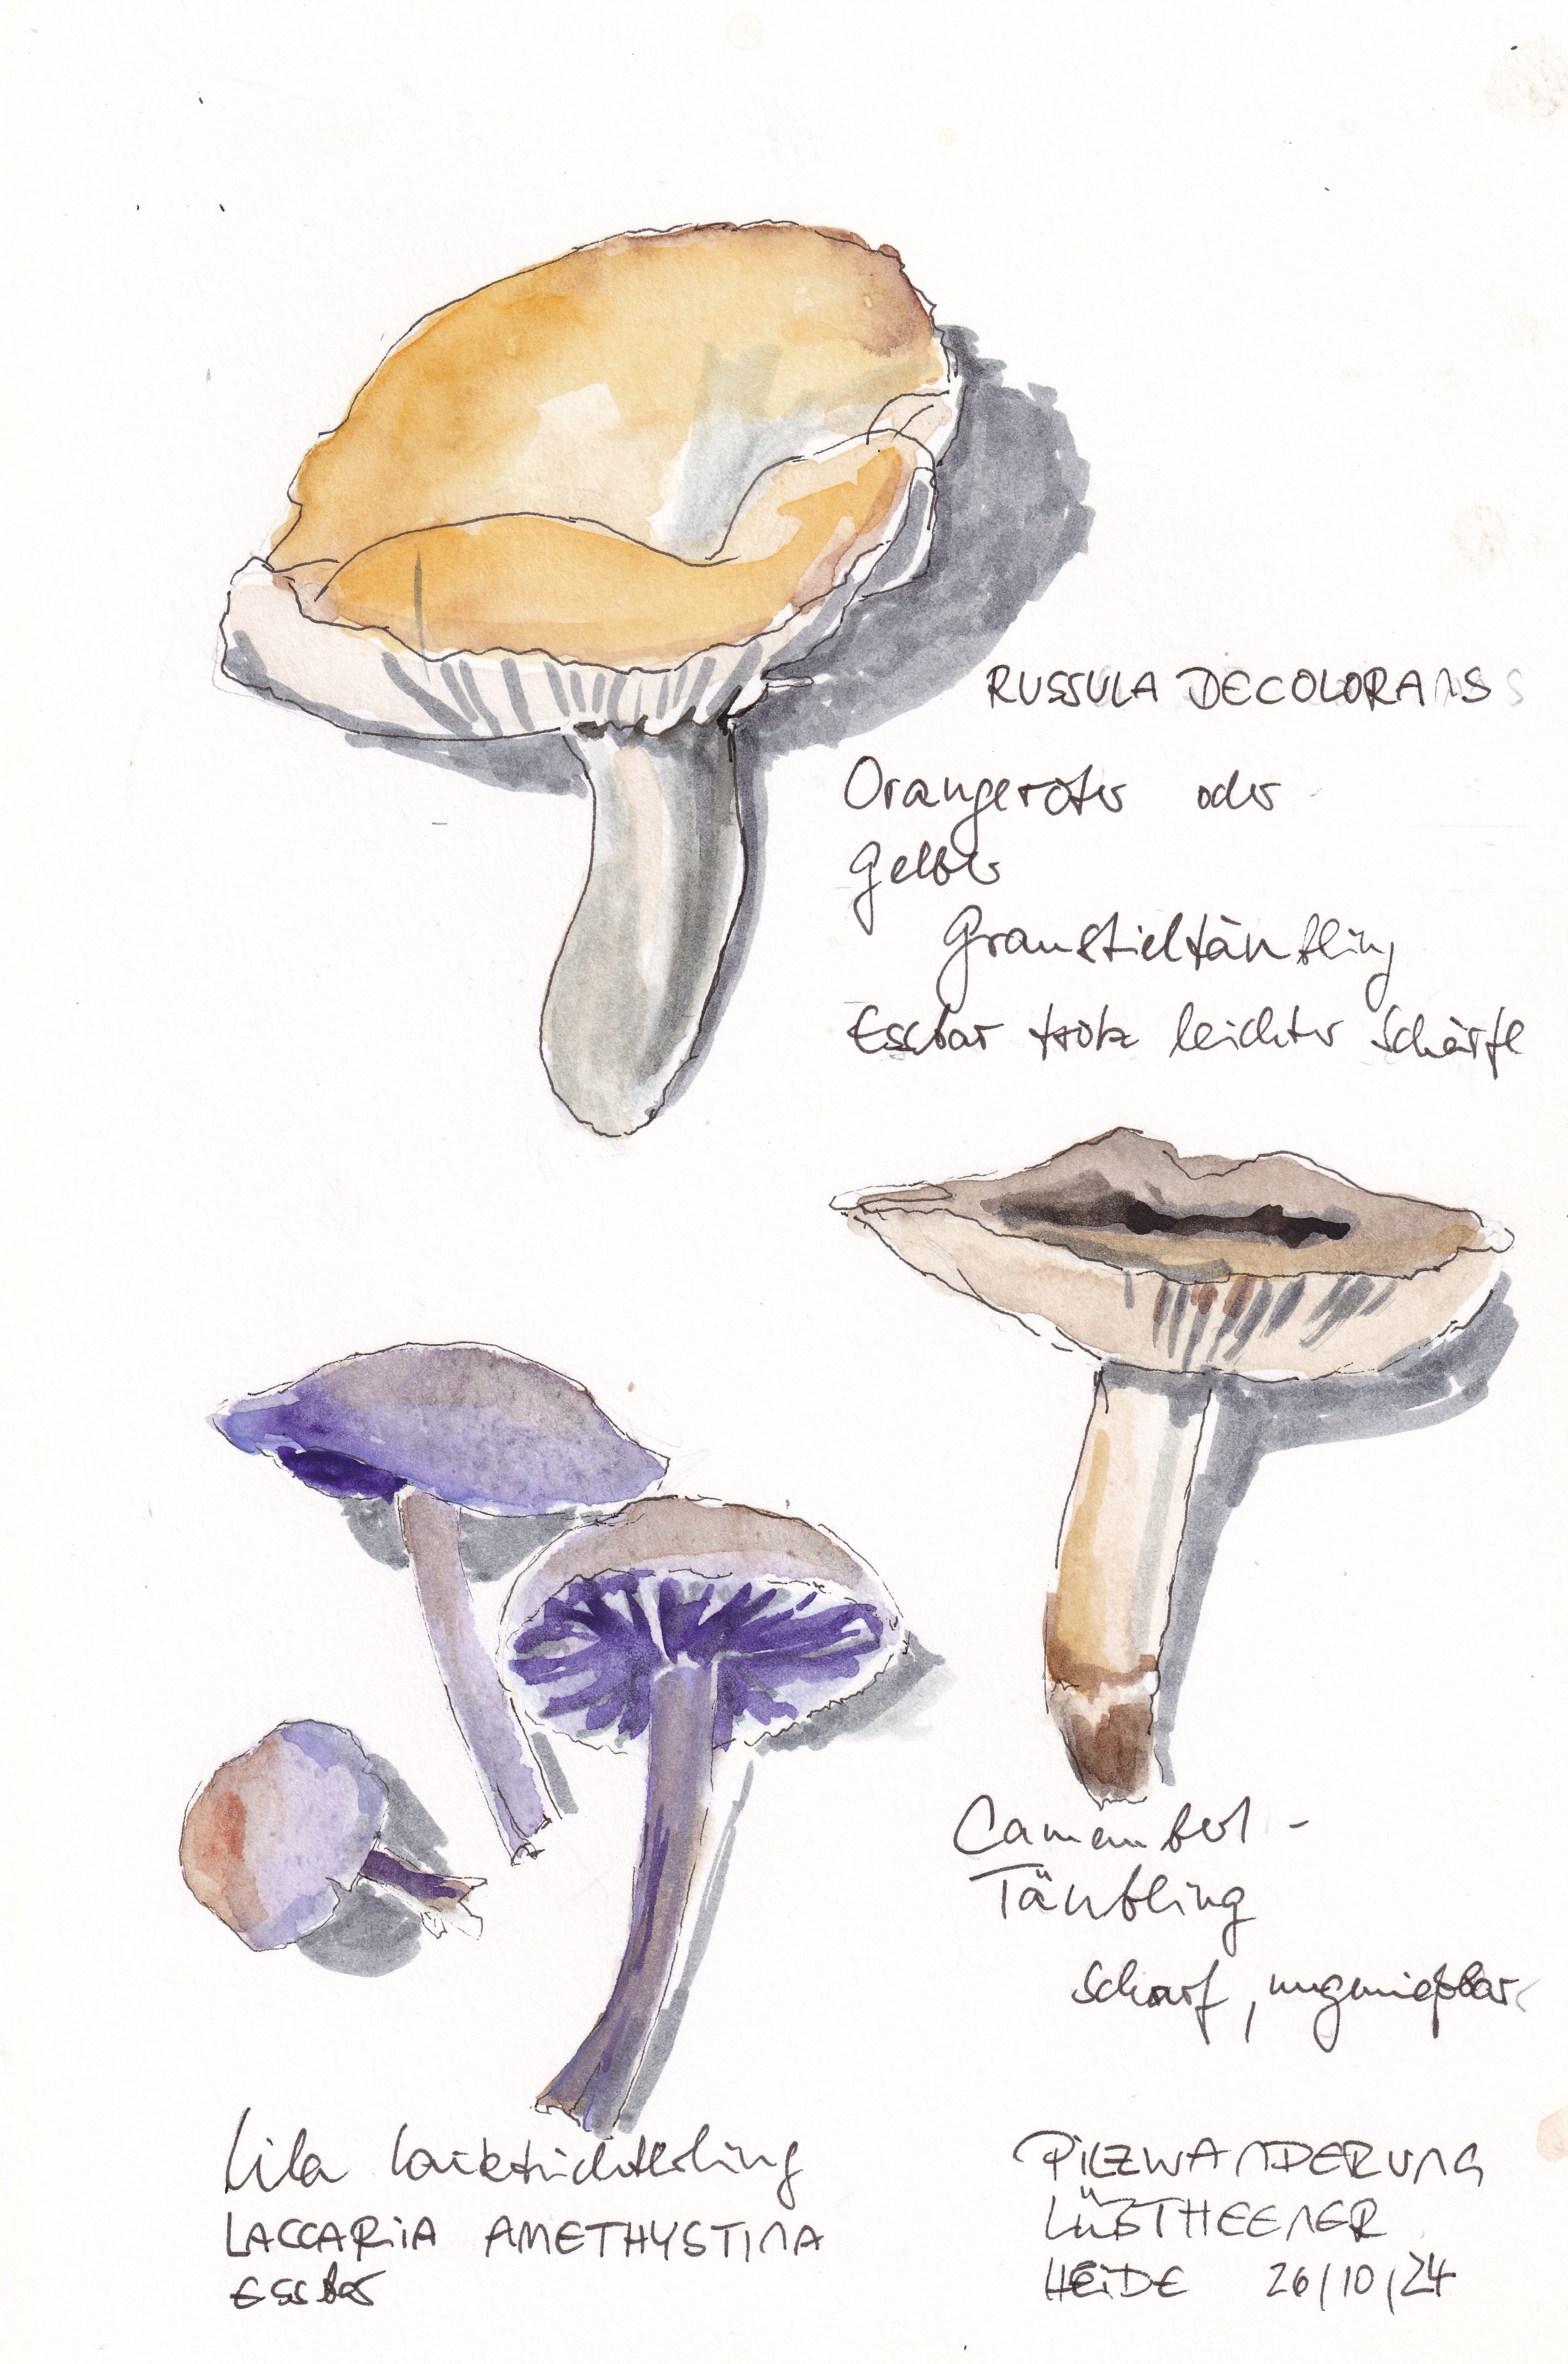 RUSSULA DECOLORANS
Orangeroter oder
Gelber
Graustieltäubling
Essbar trotz leichter Schärfe
Camembert-
Täubling
scharf, ungenießbar
Lila Lacktrichterling
LACCARIA AMETHYSTINA
essbar
PILZWANDERUNG
LÜBTHEENER
HEIDE 26/10/24